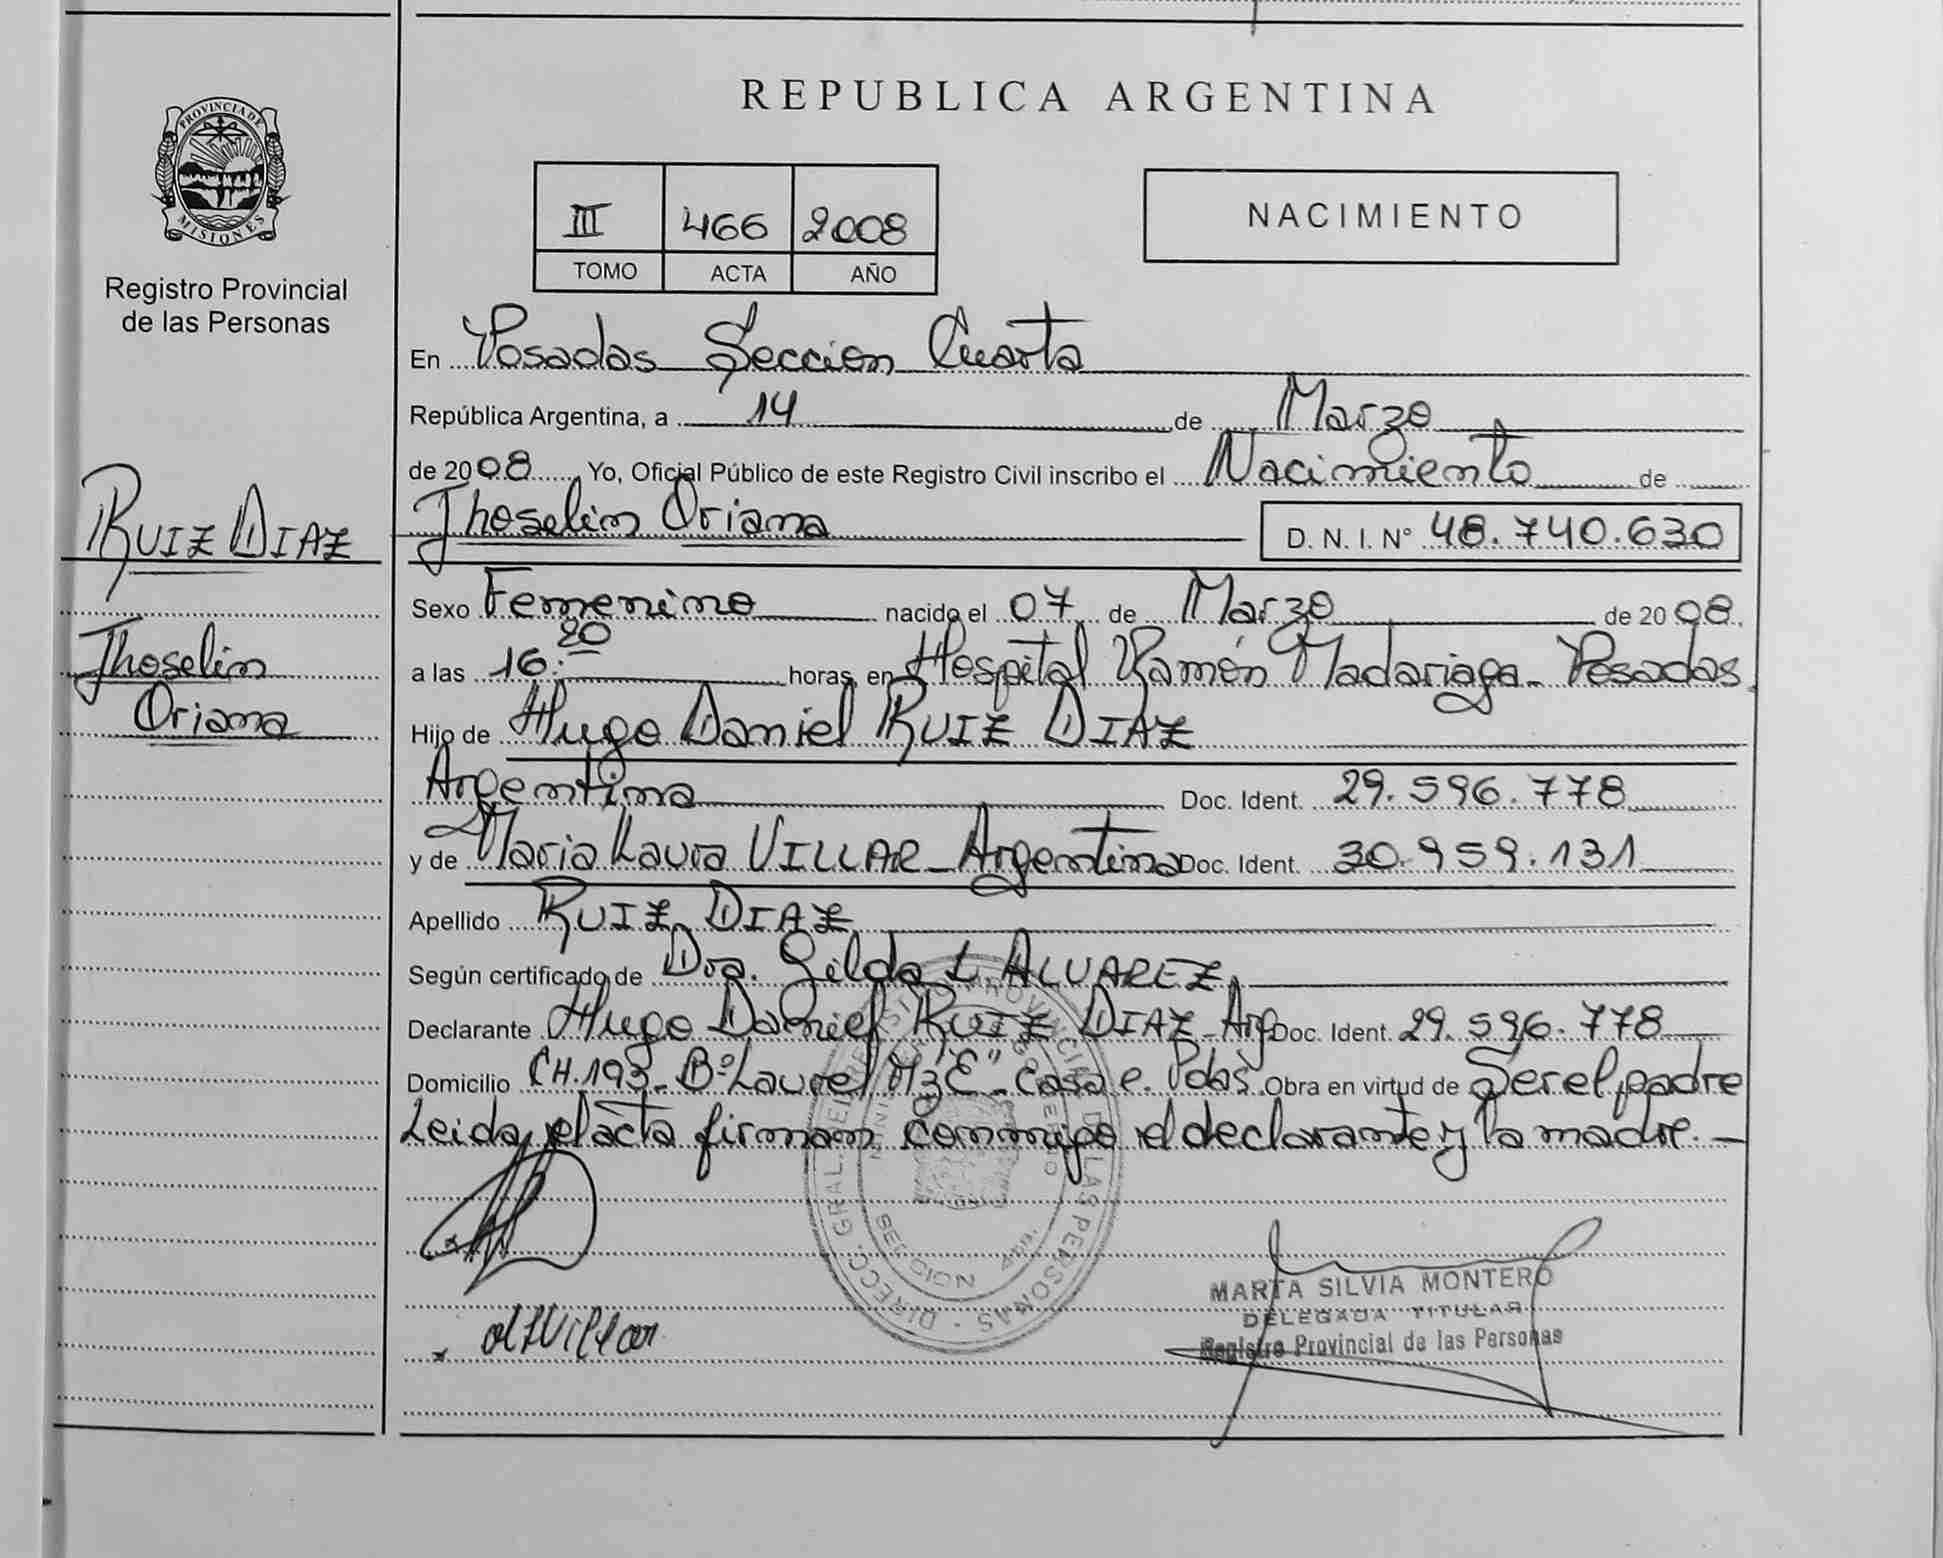 PROVINCIA DE
MISIONES
Registro Provincial
de las Personas
RUIZ DIAZ
Jhoselin
Oriana
REPUBLICA ARGENTINA
III 466 2008
TOMO ACTA AÑO
NACIMIENTO
En Posadas Seccion Cuarta
República Argentina, a 14 de Marzo
de 2008 Yo, Oficial Público de este Registro Civil inscribo el Nacimiento de
Jhoselin Oriana D. N. I. N° 48.740.630
Sexo Femenino nacido el 07 de Marzo de 2008
a las 16:20 horas, en Hospital Ramón Madariaga - Posadas
Hijo de Hugo Daniel RUIZ DIAZ
Argentina Doc. Ident. 29.596.778
y de Maria Laura VILLAR - Argentina Doc. Ident. 30.959.131
Apellido RUIZ DIAZ
Según certificado de Dra. Gilda L ALVAREZ
Declarante Hugo Daniel RUIZ DIAZ - Arg Doc. Ident. 29.596.778
Domicilio CH.193 - B° Laurel Mz "E" - Casa e. Pdas Obra en virtud de Ser el padre
Leida el acta firman conmigo el declarante y la madre. -
DIRECC. GRAL. DEL REGISTRO PROVINCIAL DE LAS PERSONAS
MARTA SILVIA MONTERO
DELEGADA TITULAR
Registro Provincial de las Personas
Villar